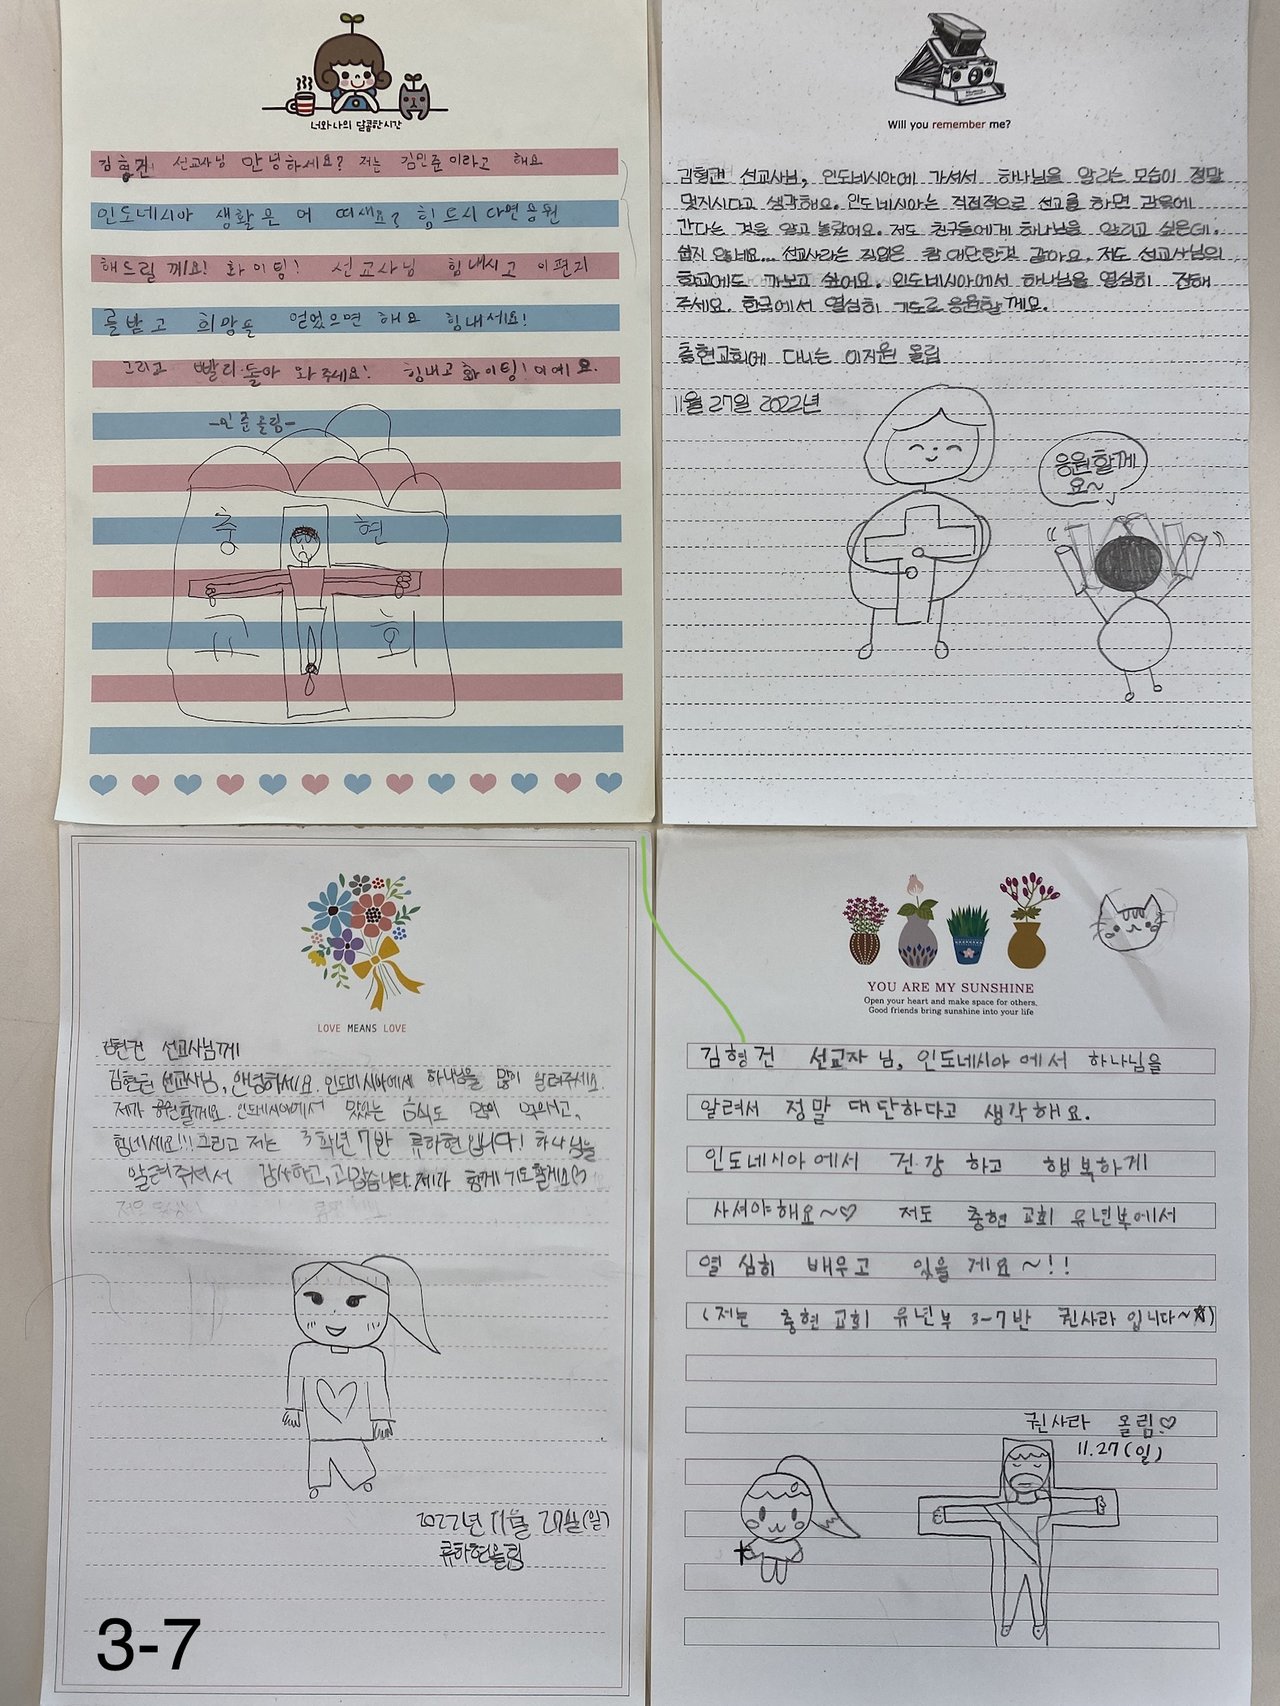 너와 나의 달콤한 시간
김형건 선교사님 안녕하세요? 저는 김인준이라고 해요
인도네시아 생활은 어떠세요? 힘드시다면 응원
해드릴께요! 화이팅! 선교사님 힘내시고 이편지
를받고 희망을 얻었으면 해요 힘내세요!
그리고 빨리 돌아 와주세요! 힘내고 화이팅! 이에요.
-인준올림-
충 현
교 회
Will you remember me?
김형권 선교사님, 인도네시아에 가셔서 하나님을 알리는 모습이 정말
멋지시다고 생각해요. 인도네시아는 직접적으로 선교를 하면 감옥에
간다는 것을 알고 놀랐어요. 저도 친구들에게 하나님을 알리고 싶은데.
쉽지 않네요... 선교사라는 직업은 참 대단한것 같아요. 저도 선교사님의
학교에도 가보고 싶어요. 인도네시아에서 하나님을 열심히 전해
주세요. 한국에서 열심히 기도로 응원할께요.
충현교회에 다니는 이지원 올림
11월 27일 2022년
응원할께
요~
LOVE MEANS LOVE
선교사님께
선교사님, 안녕하세요. 인도네시아에서 하나님을 많이 알려주세요.
제가 응원할께요. 인도네시아에서 맛있는 음식도 많이 먹으시고,
힘내세요!!! 그리고 저는 3학년 7반 류하현입니다! 하나님을
알려주셔서 감사하고, 고맙습니다. 제가 함께 기도할게요♡
2022년 11월 27일(일)
류하현올림
3-7
YOU ARE MY SUNSHINE
Open your heart and make space for others.
Good friends bring sunshine into your life
김형건 선교자님, 인도네시아에서 하나님을
알려서 정말 대단하다고 생각해요.
인도네시아에서 건강하고 행복하게
사셔야해요~♡ 저도 충현교회 유년부에서
열심히 배우고 있을게요~!!
(저는 충현교회 유년부 3-7반 권사라입니다~☆)
권사라 올림♡
11.27(일)